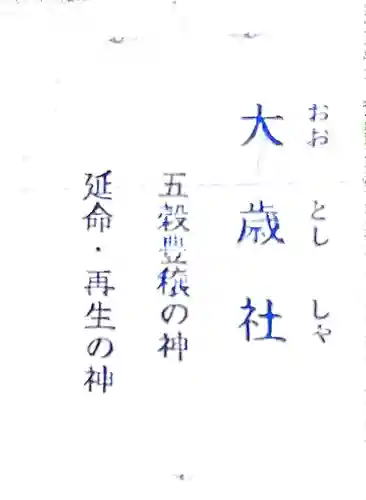 おお とし しゃ
大歳社
五穀豊穣の神
延命・再生の神